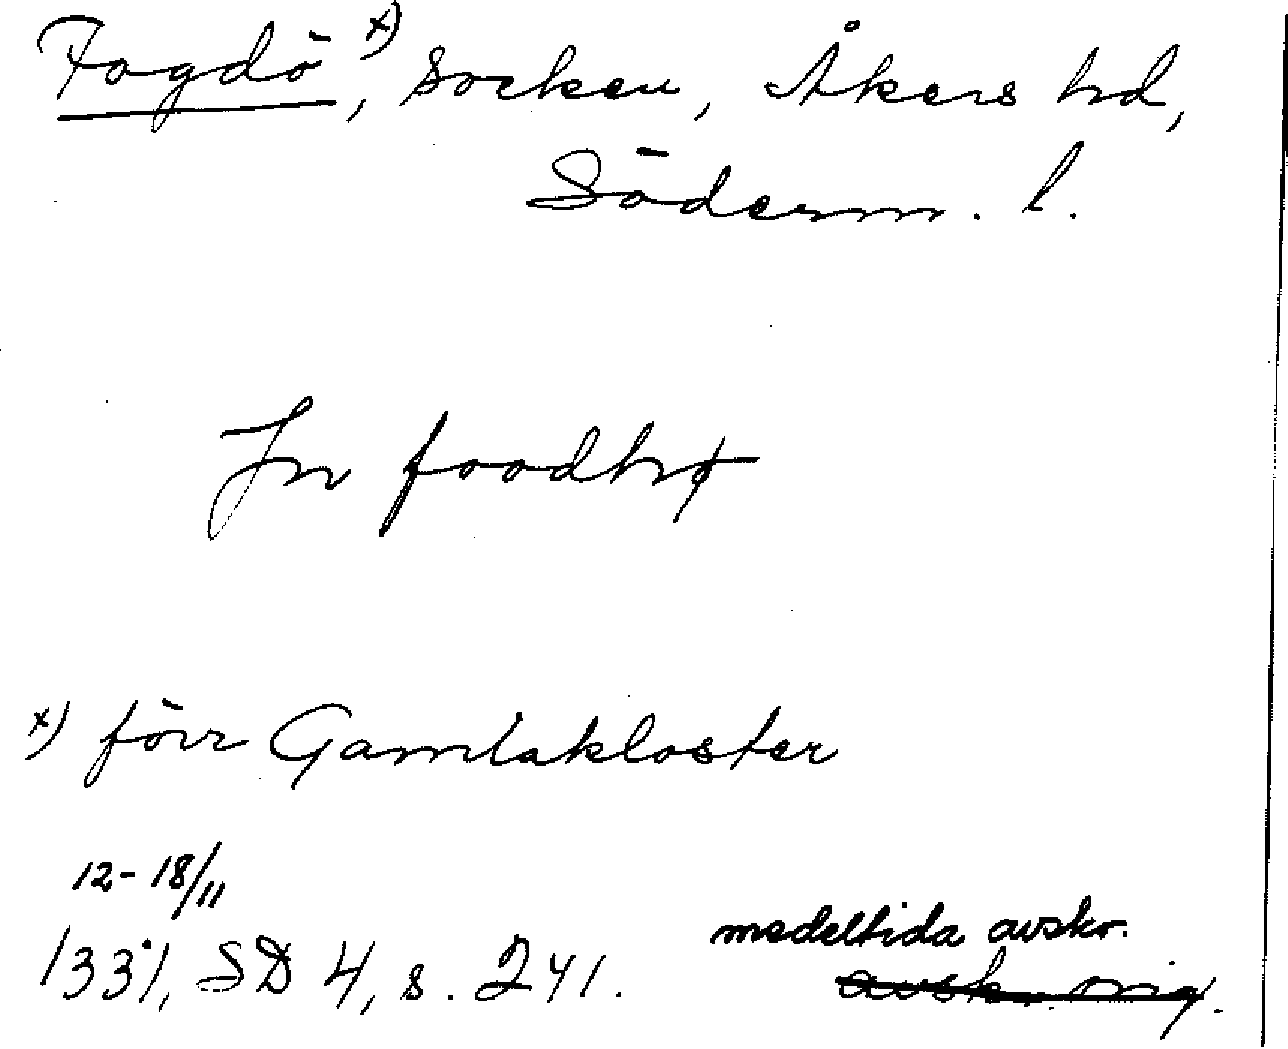 Fogdö x), socken, Åkers hd,
Söderm. l.
In foodhø
x) förr Gamlakloster
12-18/11
1331, SD 4, s. 241.
medeltida avskr.
avskr. orig.